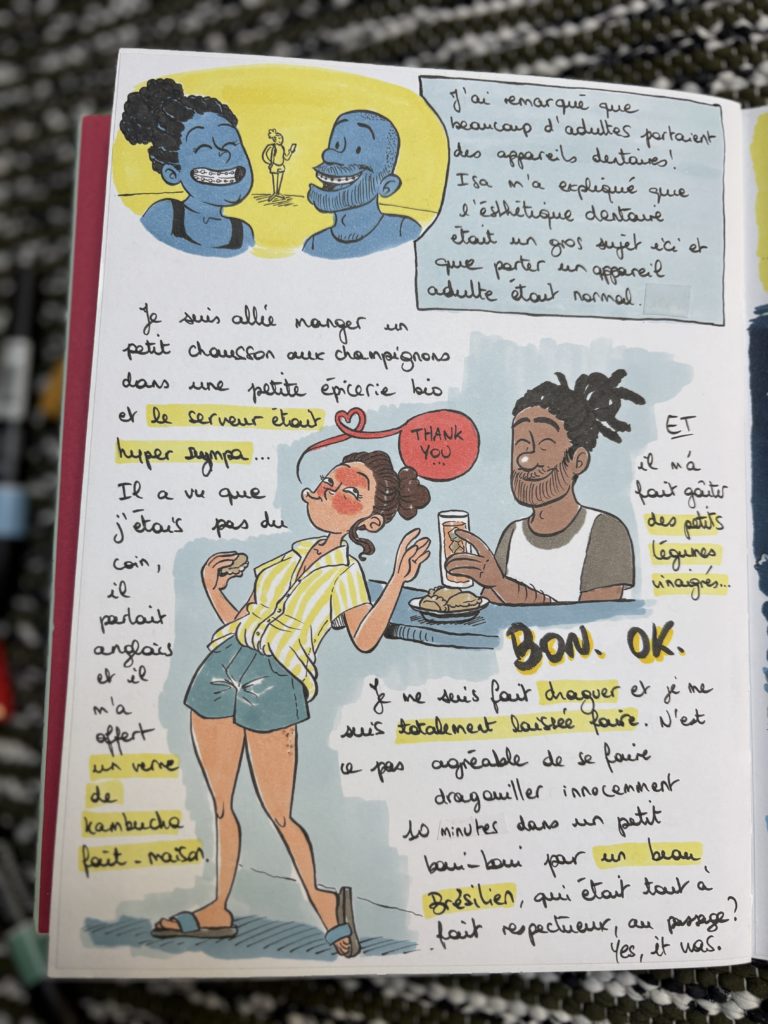 J'ai remarqué que
beaucoup d'adultes portaient
des appareils dentaires!
Isa m'a expliqué que
l'ésthétique dentaire
était un gros sujet ici et
que porter un appareil
adulte était normal.
Je suis allée manger un
petit chausson aux champignons
dans une petite épicerie bio
et le serveur était
hyper sympa...
Il a vu que
j'étais pas du
coin,
il
parlait
anglais
et il
m'a
offert
un verre
de
kambucha
fait-maison.
THANK
YOU...
ET
il m'a
fait goûter
des petits
légumes
vinaigrés...
BON. OK.
Je me suis fait draguer et je me
suis totalement laissée faire. N'est
ce pas agréable de se faire
dragouiller innocemment
10 minutes dans un petit
boui-boui par un beau
Brésilien, qui était tout à
fait respectueux, au passage?
Yes, it was.